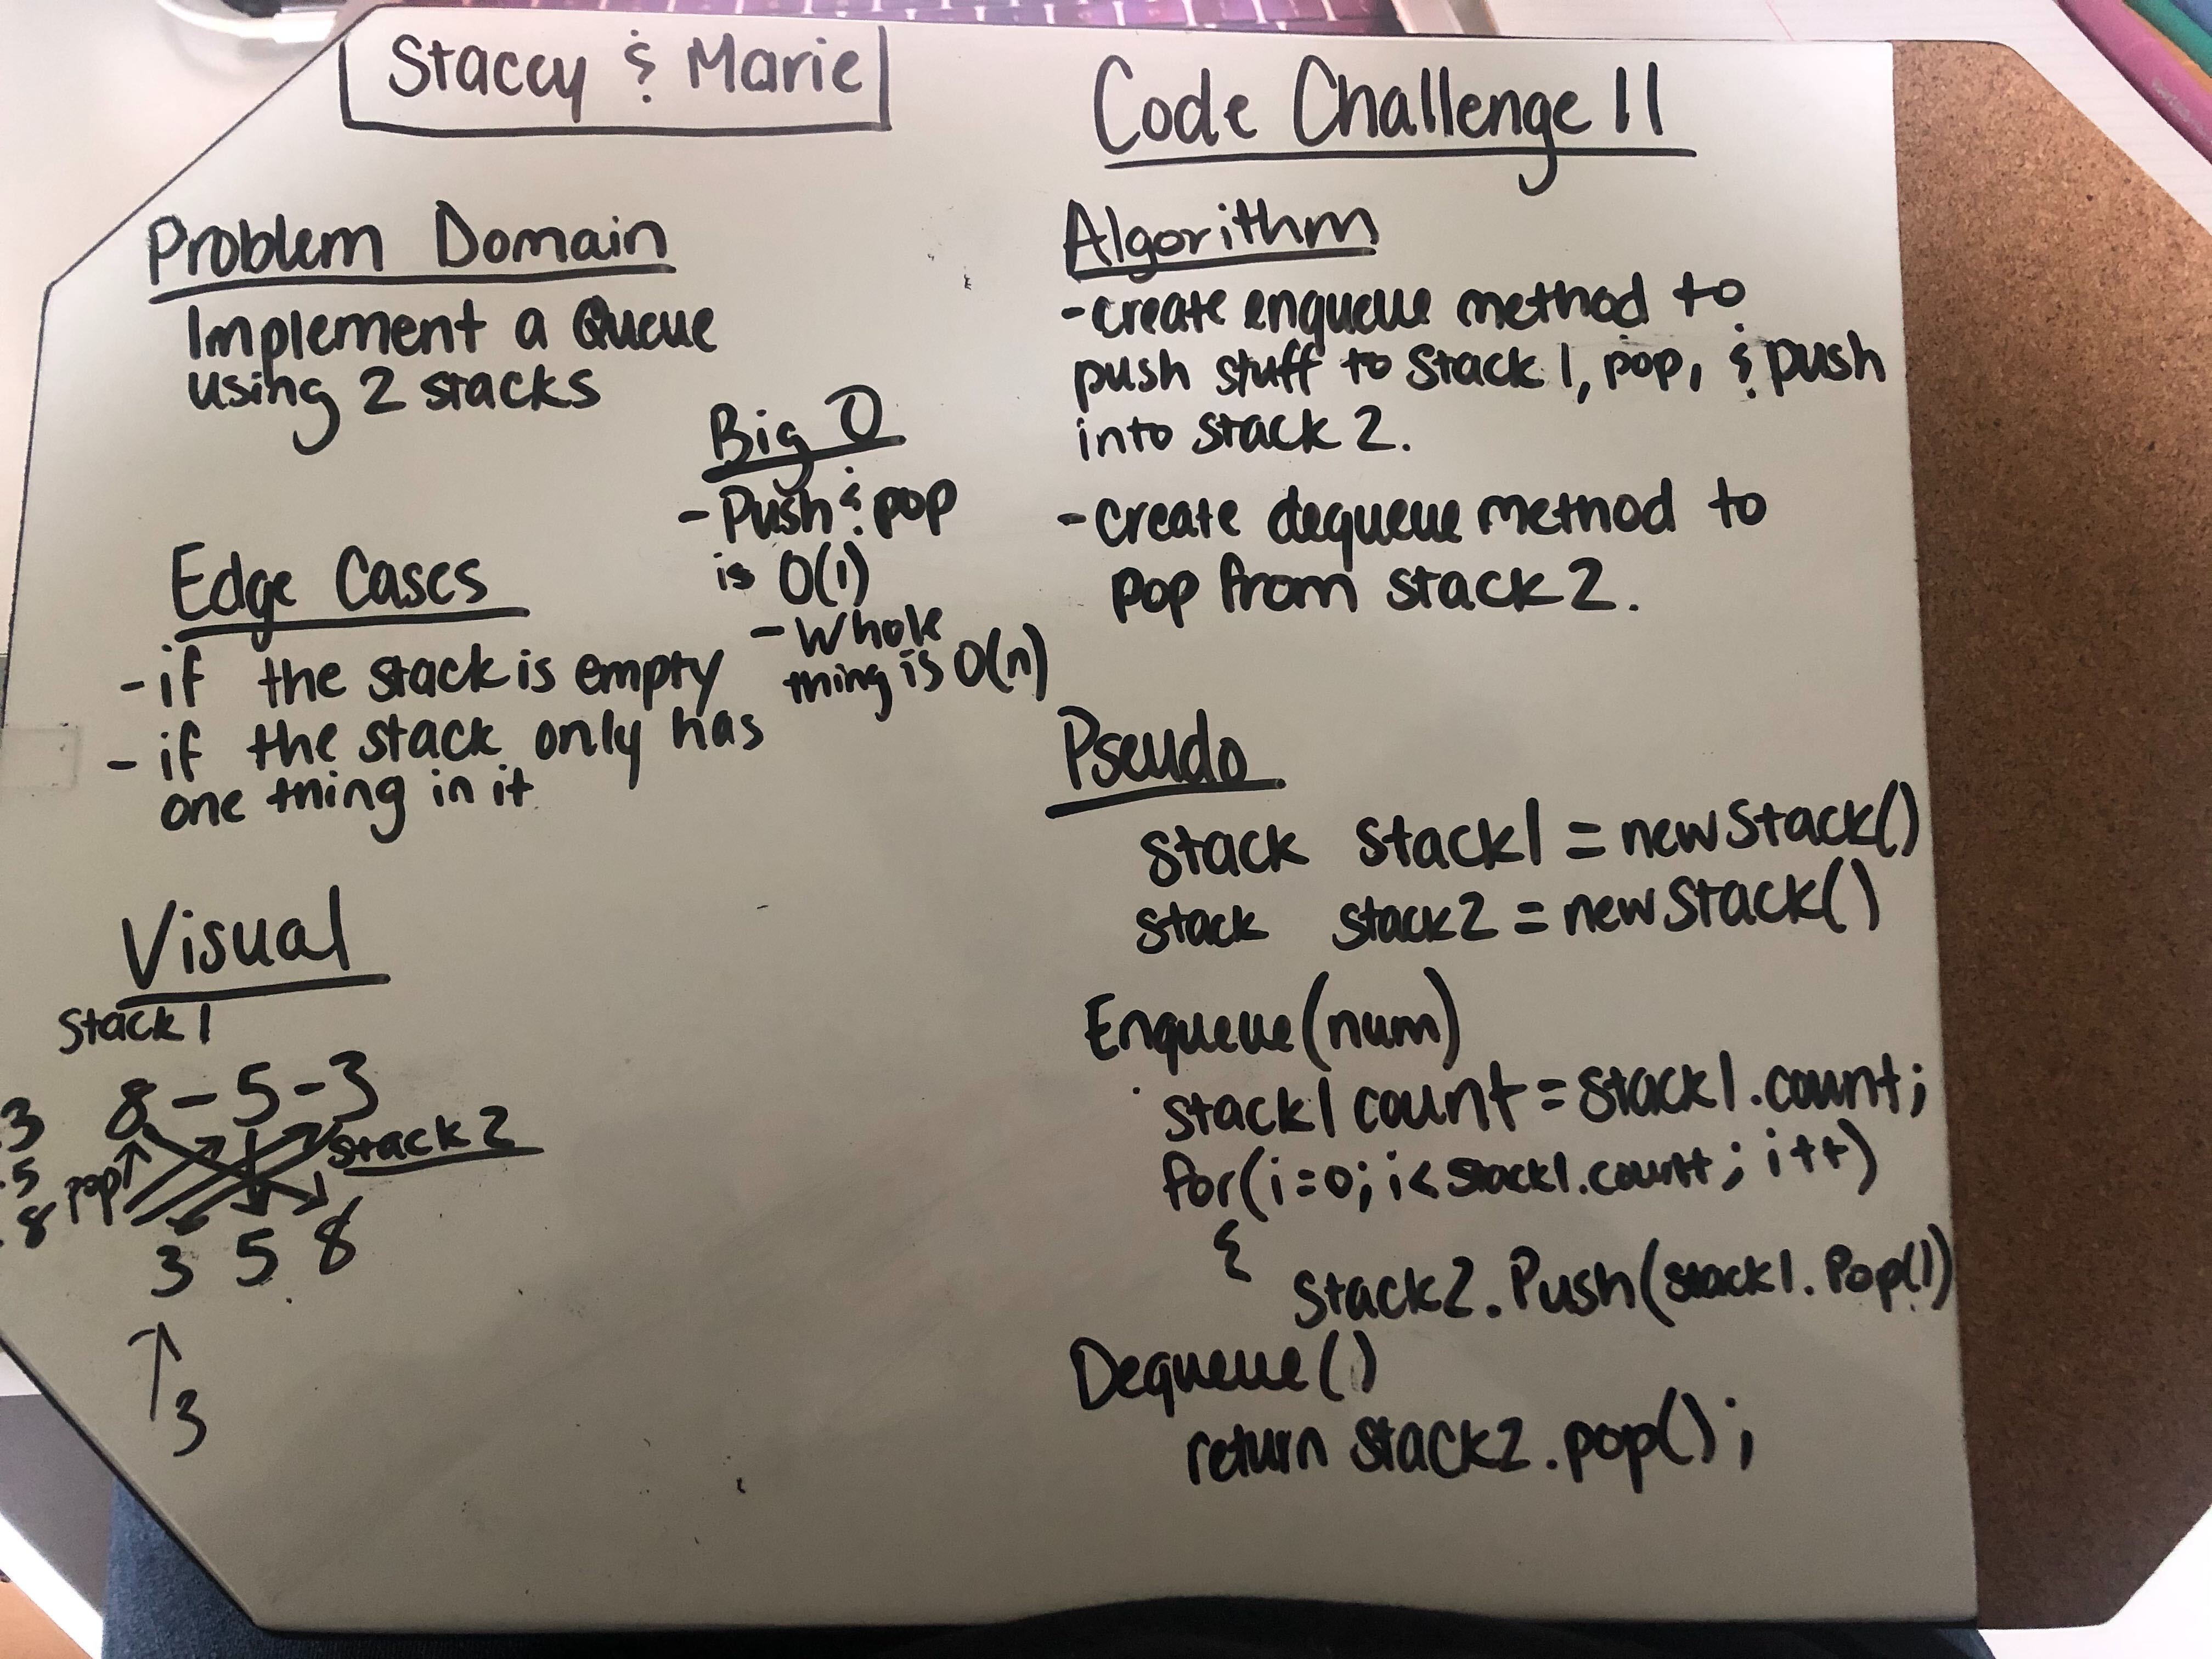 Staccy & Marie
Code Challenge 11
Problem Domain
Implement a Queue
using 2 stacks
Big O
- Push & pop
is O(1)
- Whole
thing is O(n)
Edge Cases
- if the stack is empty
- if the stack only has
one thing in it
Visual
Stack 1
8 - 5 - 3
stack 2
3
5
8
pop
3 5 8
3
Algorithm
- create enqueue method to
push stuff to Stack 1, pop, & push
into stack 2.
- create dequeue method to
pop from stack 2.
Pseudo
stack stack1 = new Stack()
stack stack2 = new Stack()
Enqueue(num)
stack1 count = stack1.count;
for(i=0; i< stack1.count; i++)
{
stack2.Push(stack1.Pop())
Dequeue()
return stack2.pop();